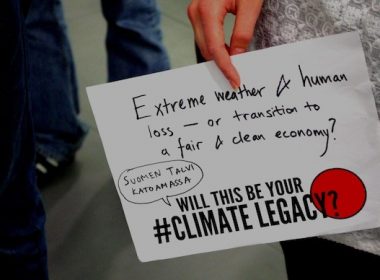 Extreme weather & human
loss — or transition to
a fair & clean economy?
SUOMEN TALVI
KATOAMASSA
WILL THIS BE YOUR
#CLIMATE LEGACY?